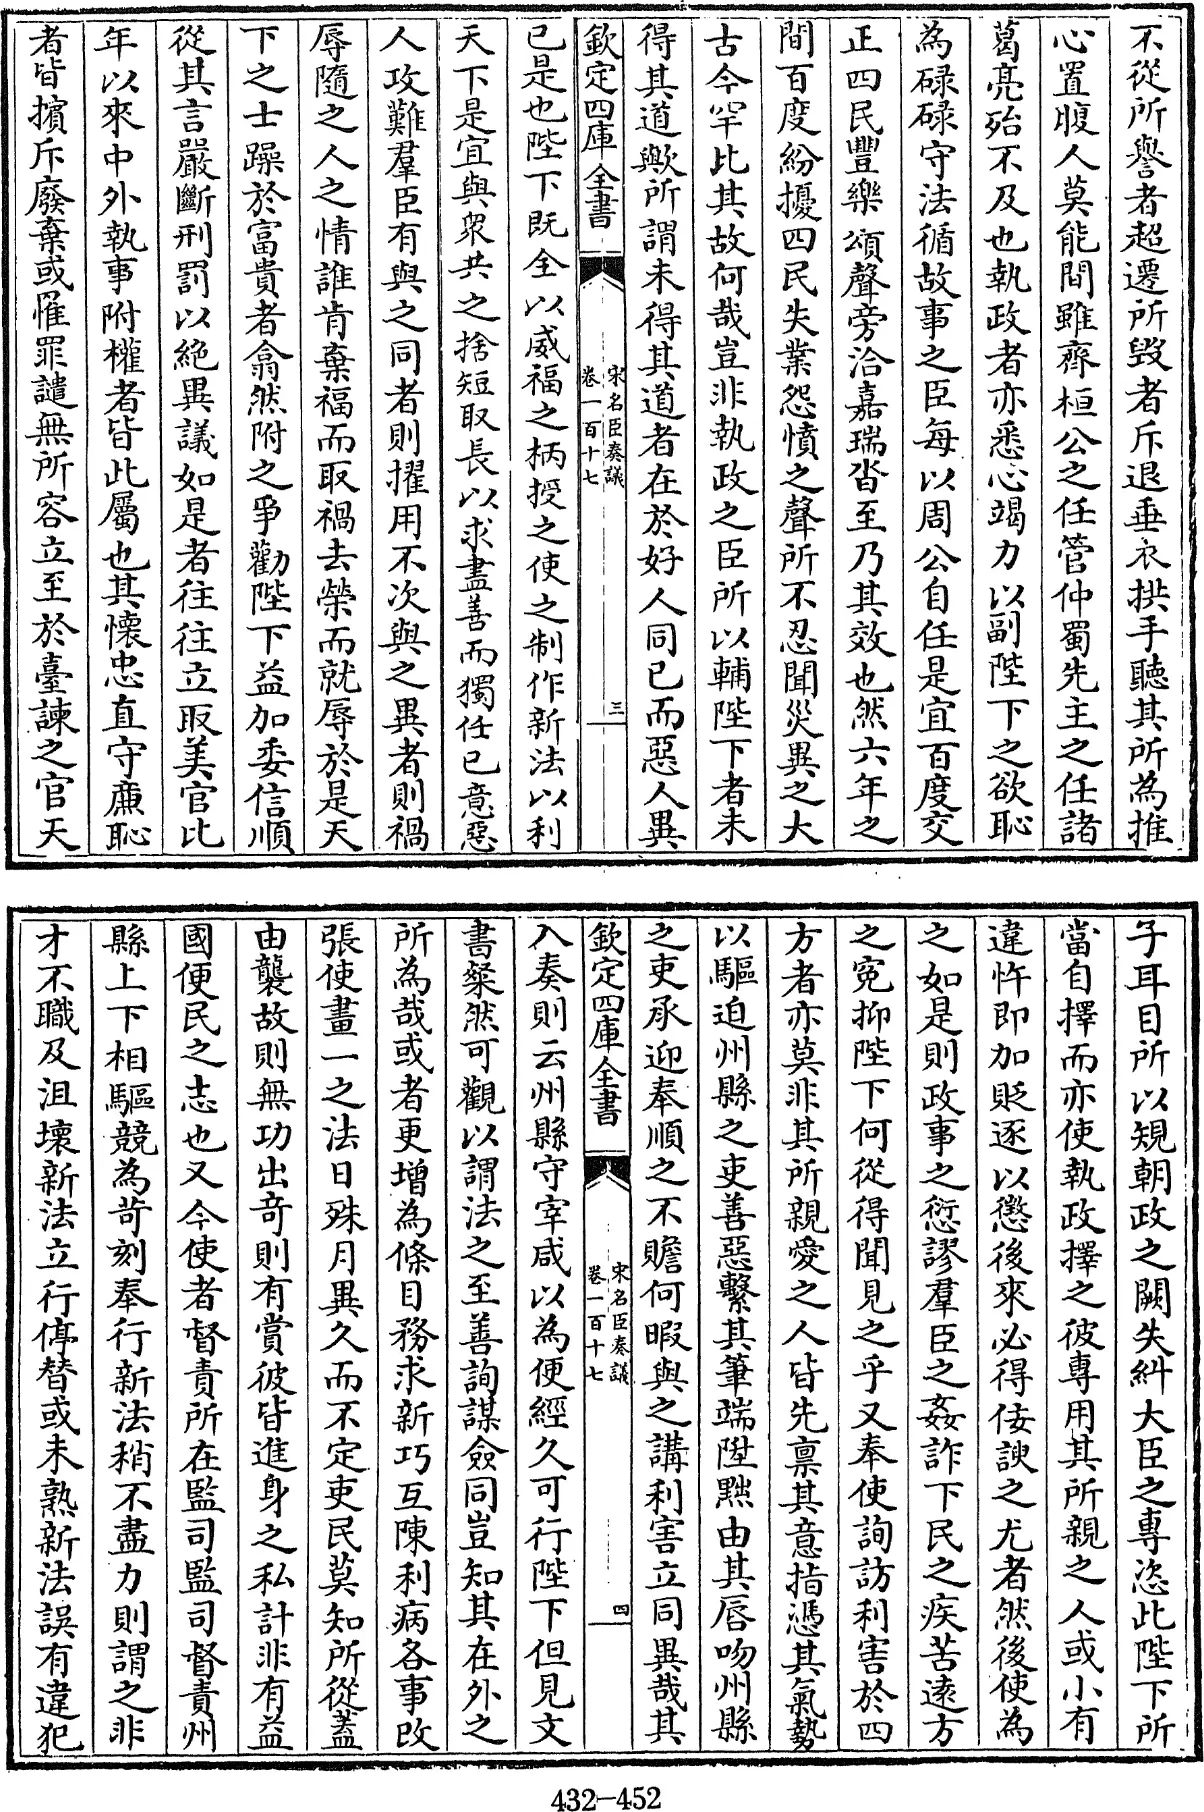 不從所譽者超遷所毀者斥退垂衣拱手聽其所為推
心置腹人莫能間雖齊桓公之任管仲蜀先主之任諸
葛亮殆不及也執政者亦悉心竭力以副陛下之欲恥
為碌碌守法循故事之臣每以周公自任是宜百度交
正四民豐樂頌聲旁洽嘉瑞沓至乃其效也然六年之
間百度紛擾四民失業怨憤之聲所不忍聞災異之大
古今罕比其故何哉豈非執政之臣所以輔陛下者未
得其道歟所謂未得其道者在於好人同已而惡人異
欽定四庫全書
宋名臣奏議
卷一百十七
三
已是也陛下既全以威福之柄授之使之制作新法以利
天下是宜與衆共之捨短取長以求盡善而獨任已意惡
人攻難羣臣有與之同者則擢用不次與之異者則禍
辱隨之人之情誰肯棄福而取禍去榮而就辱於是天
下之士躁於富貴者翕然附之爭勸陛下益加委信順
從其言嚴斷刑罰以絶異議如是者往往立取美官比
年以來中外執事附權者皆此屬也其懷忠直守廉恥
者皆擯斥廢棄或罹罪譴無所容立至於臺諫之官天
子耳目所以規朝政之闕失糾大臣之專恣此陛下所
當自擇而亦使執政擇之彼專用其所親之人或小有
違忤即加貶逐以懲後來必得佞諛之尤者然後使為
之如是則政事之愆謬羣臣之姦詐下民之疾苦逺方
之寃抑陛下何從得聞見之乎又奉使詢訪利害於四
方者亦莫非其所親愛之人皆先禀其意指憑其氣勢
以驅迫州縣之吏善惡繫其筆端陞黜由其唇吻州縣
之吏承迎奉順之不贍何暇與之講利害立同異哉其
欽定四庫全書
宋名臣奏議
卷一百十七
四
入奏則云州縣守宰咸以為便經久可行陛下但見文
書粲然可觀以謂法之至善詢謀僉同豈知其在外之
所為哉或者更增為條目務求新巧互陳利病各事改
張使畫一之法日殊月異久而不定吏民莫知所從蓋
由襲故則無功出竒則有賞彼皆進身之私計非有益
國便民之志也又今使者督責所在監司監司督責州
縣上下相驅競為苛刻奉行新法稍不盡力則謂之非
才不職及沮壞新法立行停替或未熟新法誤有違犯
432-452